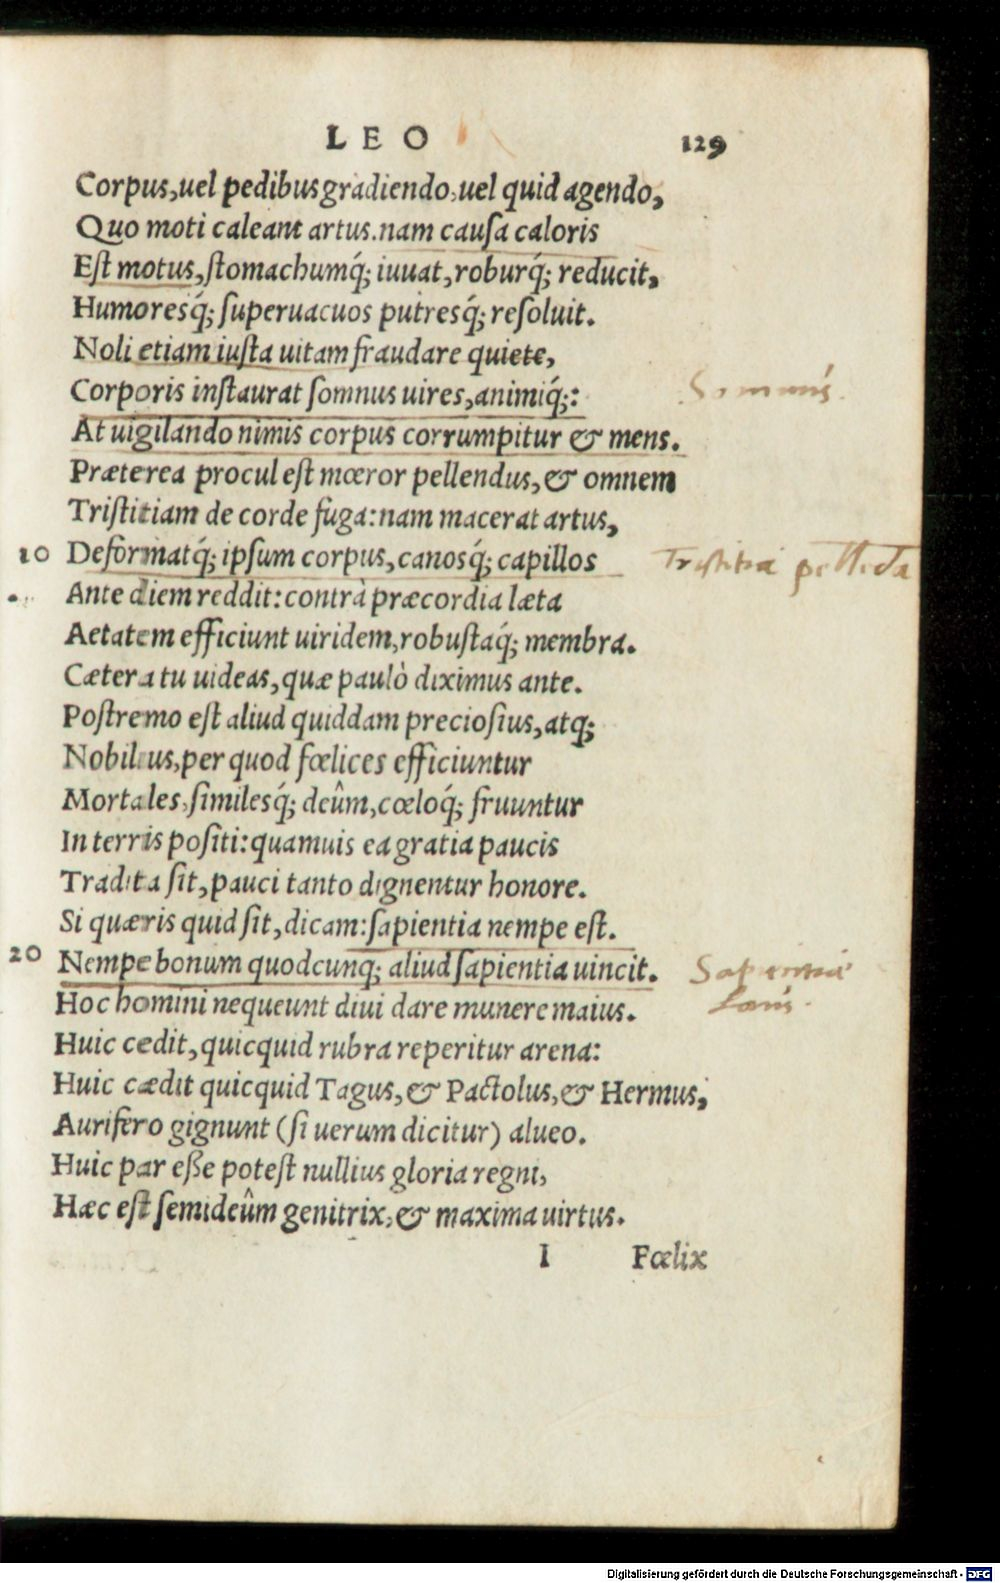 LEO 129
Corpus, uel pedibus gradiendo, uel quid agendo,
Quo moti caleant artus. nam causa caloris
Est motus, stomachumq́; iuuat, roburq́; reducit,
Humoresq́; superuacuos putresq́; resoluit.
Noli etiam iusta uitam fraudare quiete,
Corporis instaurat somnus uires, animiq́;: Somnus.
At uigilando nimis corpus corrumpitur & mens.
Præterea procul est mœror pellendus, & omnem
Tristitiam de corde fuga: nam macerat artus,
10 Deformatq́; ipsum corpus, canosq́; capillos Tristitia pelleda
Ante diem reddit: contrà præcordia læta
Aetatem efficiunt uiridem, robustaq́; membra.
Cætera tu uideas, quæ paulò diximus ante.
Postremo est aliud quiddam preciosius, atq;
Nobilius, per quod fœlices efficiuntur
Mortales, similesq́; deûm, cœloq́; fruuntur
In terris positi: quamuis ea gratia paucis
Tradita sit, pauci tanto dignentur honore.
Si quæris quid sit, dicam: sapientia nempe est.
20 Nempe bonum quodcunq; aliud sapientia uincit. Sapientiæ
Hoc homini nequeunt diui dare munere maius. Laus.
Huic cedit, quicquid rubra reperitur arena:
Huic cædit quicquid Tagus, & Pactolus, & Hermus,
Aurifero gignunt (si uerum dicitur) alueo.
Huic par esse potest nullius gloria regni,
Hæc est semideûm genitrix, & maxima uirtus.
I Fœlix
Digitalisierung gefördert durch die Deutsche Forschungsgemeinschaft - DFG